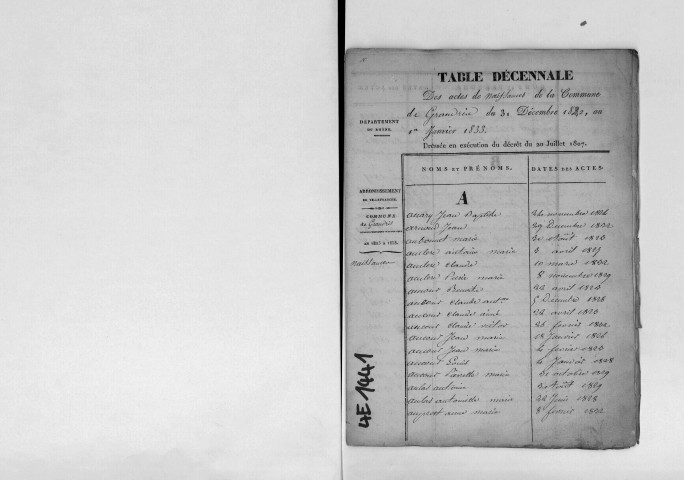 TABLE DÉCENNALE
Des actes de naissances de la Commune
de Grandris du 31 Décembre 1822, au
1er Janvier 1833.
Dressée en exécution du décrêt du 20 Juillet 1807.
DÉPARTEMENT
DU RHONE.
ARRONDISSEMENT
DE VILLEFRANCHE.
COMMUNE
de Grandris
AN 1823 à 1833.
naissances
NOMS ET PRÉNOMS. DATES DES ACTES.
A
Jean Baptiste 24 novembre 1826
Jean 29 Decembre 1832
aubonnet marie août 1823
antoine marie avril 1825
claude 10 mars 1832
Pierre marie 8 novembre 1829
Benoite 22 avril 1823
claude ant.ne 5 Decembre 1828
claude aimé 22 avril 1823
claude victor 26 fevrier 1832
Jean marie 18 Janvier 1826
Jean marie fevrier 1823
Louis Janvier 1828
Pierrette marie 31 octobre 1829
aulas antoine août 1829
aulas antoinette marie 22 Juin 1828
anne marie 8 fevrier 1832
4E1441